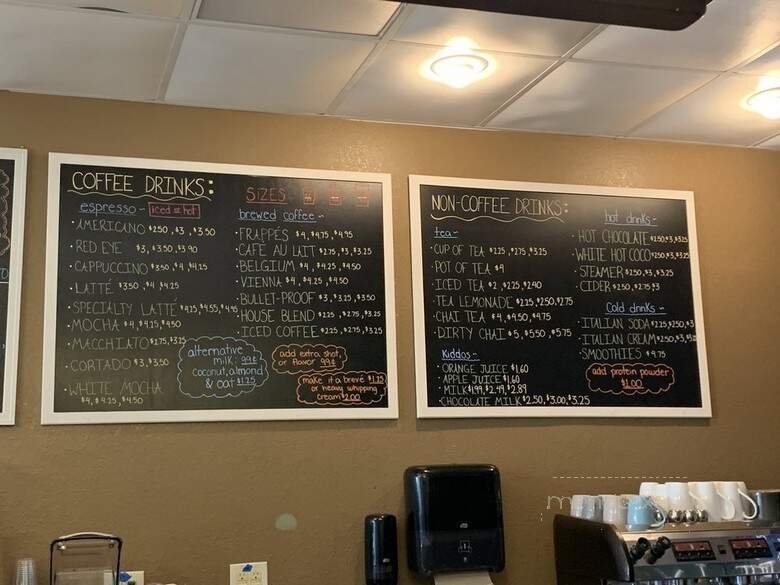 COFFEE DRINKS:
espresso ~ iced or hot
• AMERICANO $2.50, $3, $3.50
• RED EYE $3, $3.50, $3.90
• CAPPUCCINO $3.50, $4, $4.25
• LATTÉ $3.50, $4, $4.25
• SPECIALTY LATTÉ $4.25, $4.55, $4.95
• MOCHA $4, $4.25, $4.50
• MACCHIATO $2.75, $3.25
• CORTADO $3, $3.50
• WHITE MOCHA
$4, $4.25, $4.50
alternative
milk: 99¢
coconut, almond
& oat $1.25
SIZES
brewed coffee ~
• FRAPPÉS $4, $4.75, $4.95
• CAFE AU LAIT $2.75, $3, $3.25
• BELGIUM $4, $4.25, $4.50
• VIENNA $4, $4.25, $4.50
• BULLET-PROOF $3, $3.25, $3.50
• HOUSE BLEND $2.25, $2.75, $3.25
• ICED COFFEE $2.25, $2.75, $3.25
add extra shot,
or flavor 99¢
make it a brevé $1.25
or heavy whipping
cream $2.00
NON-COFFEE DRINKS:
tea ~
• CUP OF TEA $2.25, $2.75, $3.25
• POT OF TEA $4
• ICED TEA $2, $2.25, $2.40
• TEA LEMONADE $2.25, $2.50, $2.75
• CHAI TEA $4, $4.50, $4.75
• DIRTY CHAI $5, $5.50, $5.75
Kiddos ~
• ORANGE JUICE $1.60
• APPLE JUICE $1.60
• MILK $1.99, $2.49, $2.89
• CHOCOLATE MILK $2.50, $3.00, $3.25
hot drinks ~
• HOT CHOCOLATE $2.50, $3, $3.25
• WHITE HOT COCO $2.50, $3, $3.25
• STEAMER $2.50, $3, $3.25
• CIDER $2.50, $2.75, $3
Cold drinks ~
• ITALIAN SODA $2.25, $2.50, $3
• ITALIAN CREAM $2.50, $3,
• SMOOTHIES $4.75
add protein powder
$1.00